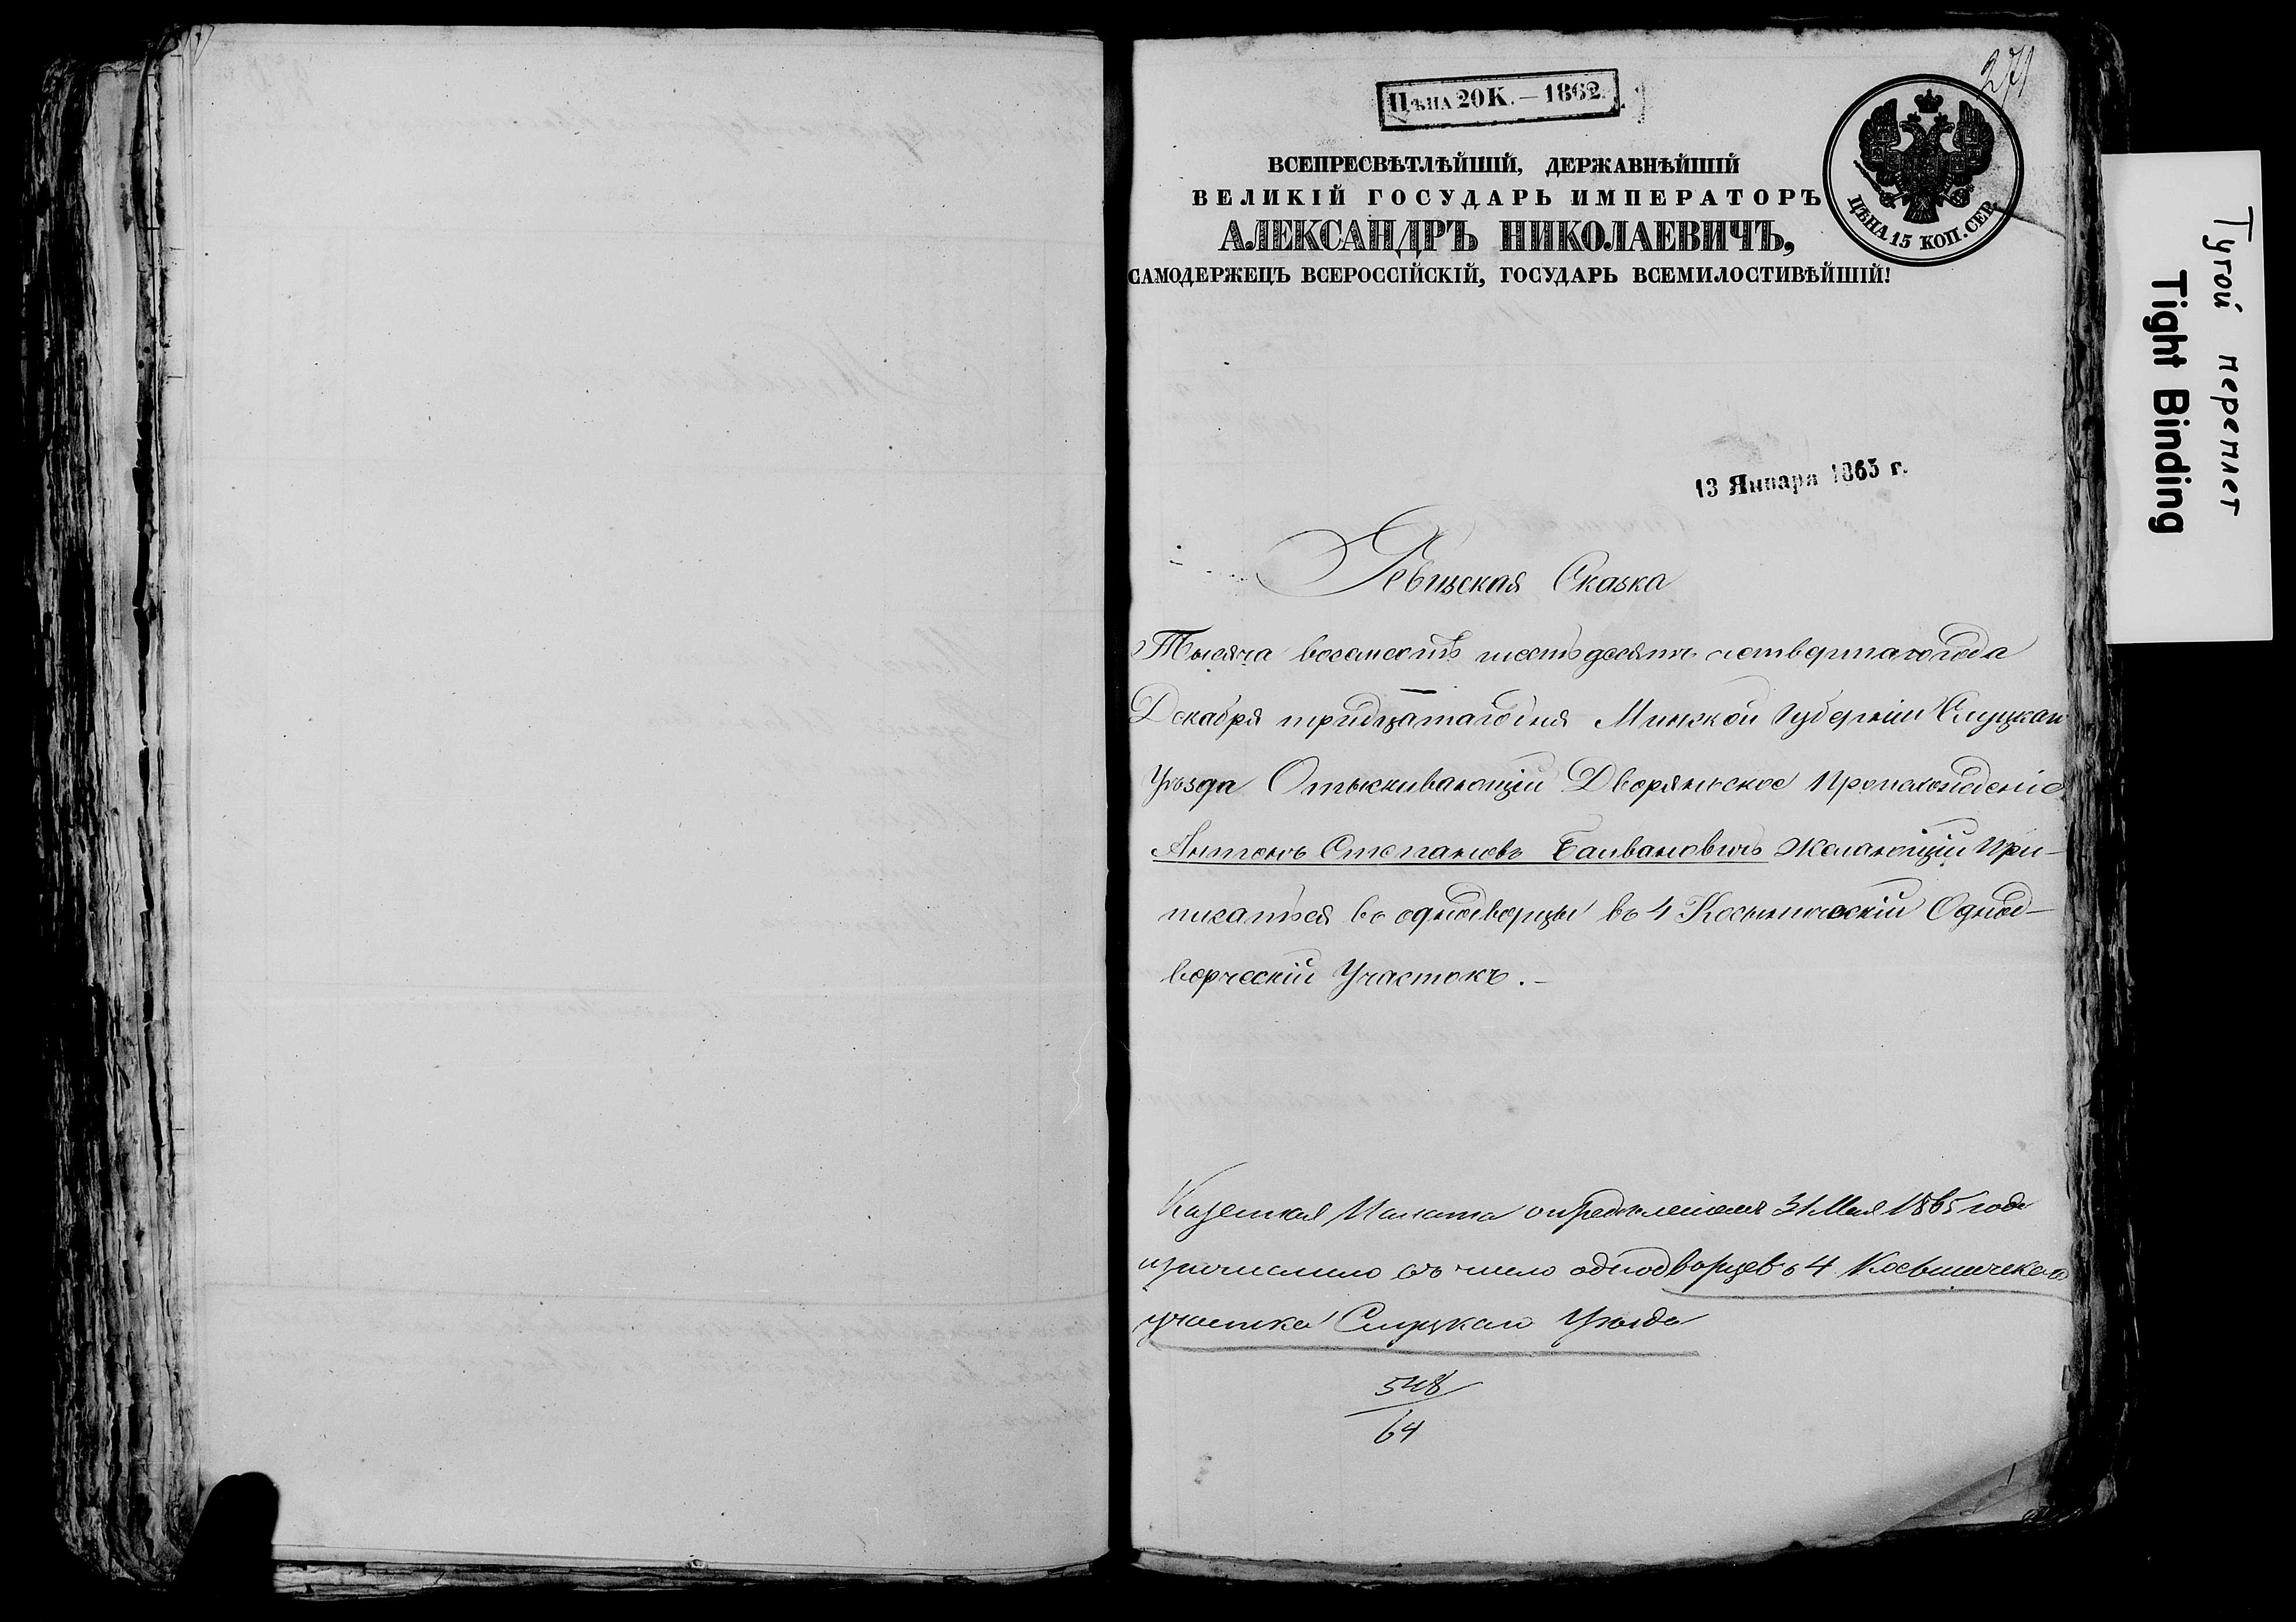 271
Цѣна 20 К. — 1862.
ЦѢНА 15 КОП. СЕР.
ВСЕПРЕСВѢТЛѢЙШІЙ, ДЕРЖАВНѢЙШІЙ
ВЕЛИКІЙ ГОСУДАРЬ ИМПЕРАТОРЪ
АЛЕКСАНДРЪ НИКОЛАЕВИЧЪ,
САМОДЕРЖЕЦЪ ВСЕРОССІЙСКІЙ, ГОСУДАРЬ ВСЕМИЛОСТИВѢЙШІЙ!
13 Января 1865 г.
Ревизская Сказка
Тысяча восемсотъ шестьдесятъ четвертаго года
Декабря тридцатаго дня Минской Губерніи Слуцкаго
Уѣзда Отыскивающій Дворянское Происхожденіе
Антонъ Степановъ Балвановичъ Желающій При-
писаться въ однодворцы въ 4 Однод-
ворческій Участокъ. –
Казенная Палата опредѣленіемъ 31 Мая 1865 года
въ число однодворцевъ 4
участка Слуцкаго Уѣзда
548
64
Тугой переплет
Tight Binding